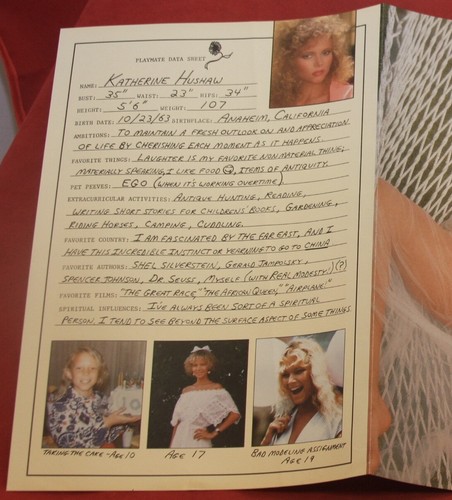 PLAYMATE DATA SHEET
NAME: KATHERINE HUSHAW
BUST: 35" WAIST: 23" HIPS: 34"
HEIGHT: 5'6" WEIGHT: 107
BIRTH DATE: 10/23/63 BIRTHPLACE: ANAHEIM, CALIFORNIA
AMBITIONS: TO MAINTAIN A FRESH OUTLOOK ON AND APPRECIATION
OF LIFE BY CHERISHING EACH MOMENT AS IT HAPPENS.
FAVORITE THINGS: LAUGHTER IS MY FAVORITE NON MATERIAL THING;
MATERIALLY SPEAKING, I LIKE FOOD, ITEMS OF ANTIQUITY.
PET PEEVES: EGO (WHEN IT'S WORKING OVERTIME)
EXTRACURRICULAR ACTIVITIES: ANTIQUE HUNTING, READING,
WRITING SHORT STORIES FOR CHILDRENS' BOOKS, GARDENING,
RIDING HORSES, CAMPING, CUDDLING.
FAVORITE COUNTRY: I AM FASCINATED BY THE FAR EAST, AND I
HAVE THIS INCREDIBLE INSTINCT OR YEARNING TO GO TO CHINA
FAVORITE AUTHORS: SHEL SILVERSTEIN, GERALD JAMPOLSKY,
SPENCER JOHNSON, DR. SEUSS, MYSELF (WITH REAL MODESTY.) (?)
FAVORITE FILMS: "THE GREAT RACE," "THE AFRICAN QUEEN," "AIRPLANE!"
SPIRITUAL INFLUENCES: I'VE ALWAYS BEEN SORT OF A SPIRITUAL
PERSON. I TEND TO SEE BEYOND THE SURFACE ASPECT OF SOME THINGS
TAKING THE CAKE - AGE 10
AGE 17
BAD MODELING ASSIGNMENT
AGE 19